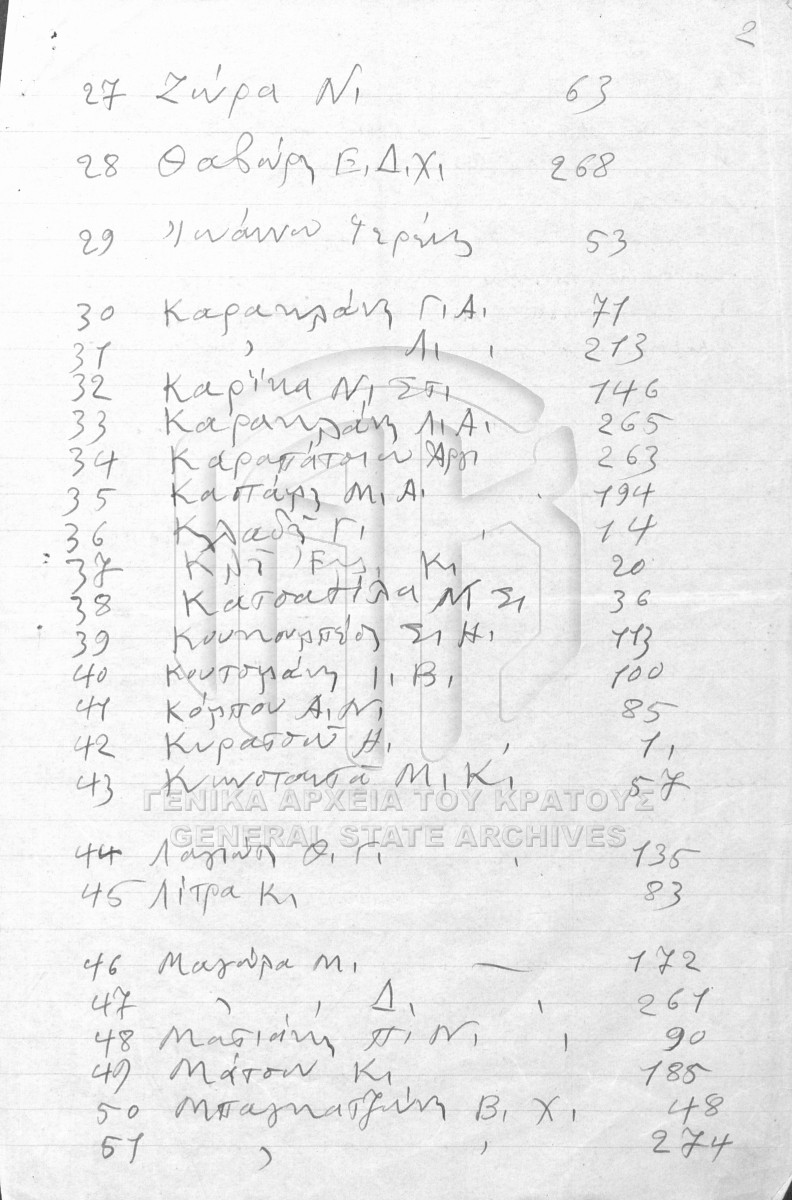 2
27 Ζώρα Ν. 63
28 Θαβώρη Ε. Δ. Χ. 268
29 Ἰωάννου 53
30 Καρακλάνη Γ. Α. 71
31 " Λ. " 213
32 Καρΐκα Ν. Σπ. 146
33 Καρακλάνη Λ. Α. 265
34 Καραπάτσιου Ἀργ. 263
35 Κασπάρη Μ. Α. 194
36 Κλαδῆ Γ. " 14
37 Κ. 20
38 Μ Σ. 36
39 Σ. Η. 113
40 Κουτσιμάνη Ι. Β. 100
41 Κόμπου Α. Ν. 85
42 Κυρατσοῦ Η. " 1.
43 Κωνσταντᾶ Μ. Κ. 57
ΓΕΝΙΚΑ ΑΡΧΕΙΑ ΤΟΥ ΚΡΑΤΟΥΣ
GENERAL STATE ARCHIVES
44 Θ. Γ. " 135
45 Λίτρα Κ. 83
46 Μαγούρα Μ. — 172
47 " " Δ. " 261
48 Ματιάκη Π. Ν. " 90
49 Μάτσου Κ. 185
50 Μπαγκατζούνη Β. Χ. 48
51 " " 274